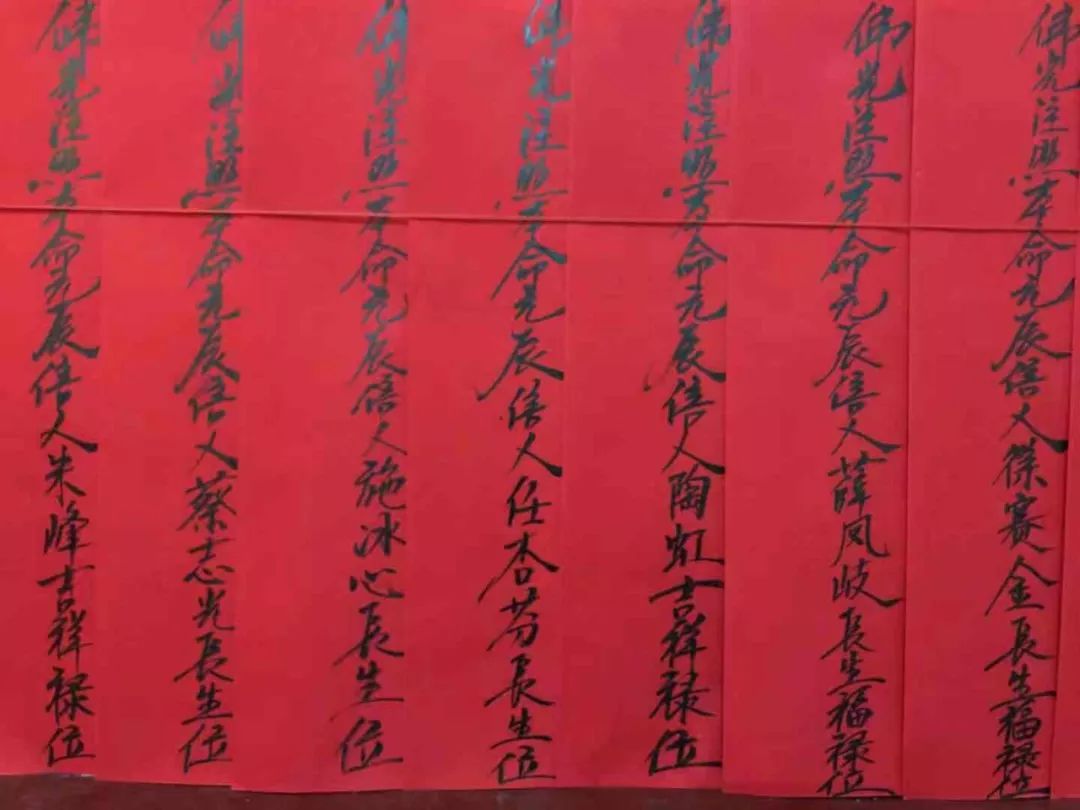 佛光注照本命元辰信人赛金長生福禄位
佛光注照本命元辰信人薛凤岐長生福禄位
佛光注照本命元辰信人陶虹吉祥禄位
佛光注照本命元辰信人任杏芬長生位
佛光注照本命元辰信人施冰心長生位
佛光注照本命元辰信人蔡志光長生位
佛光注照本命元辰信人朱峰吉祥禄位